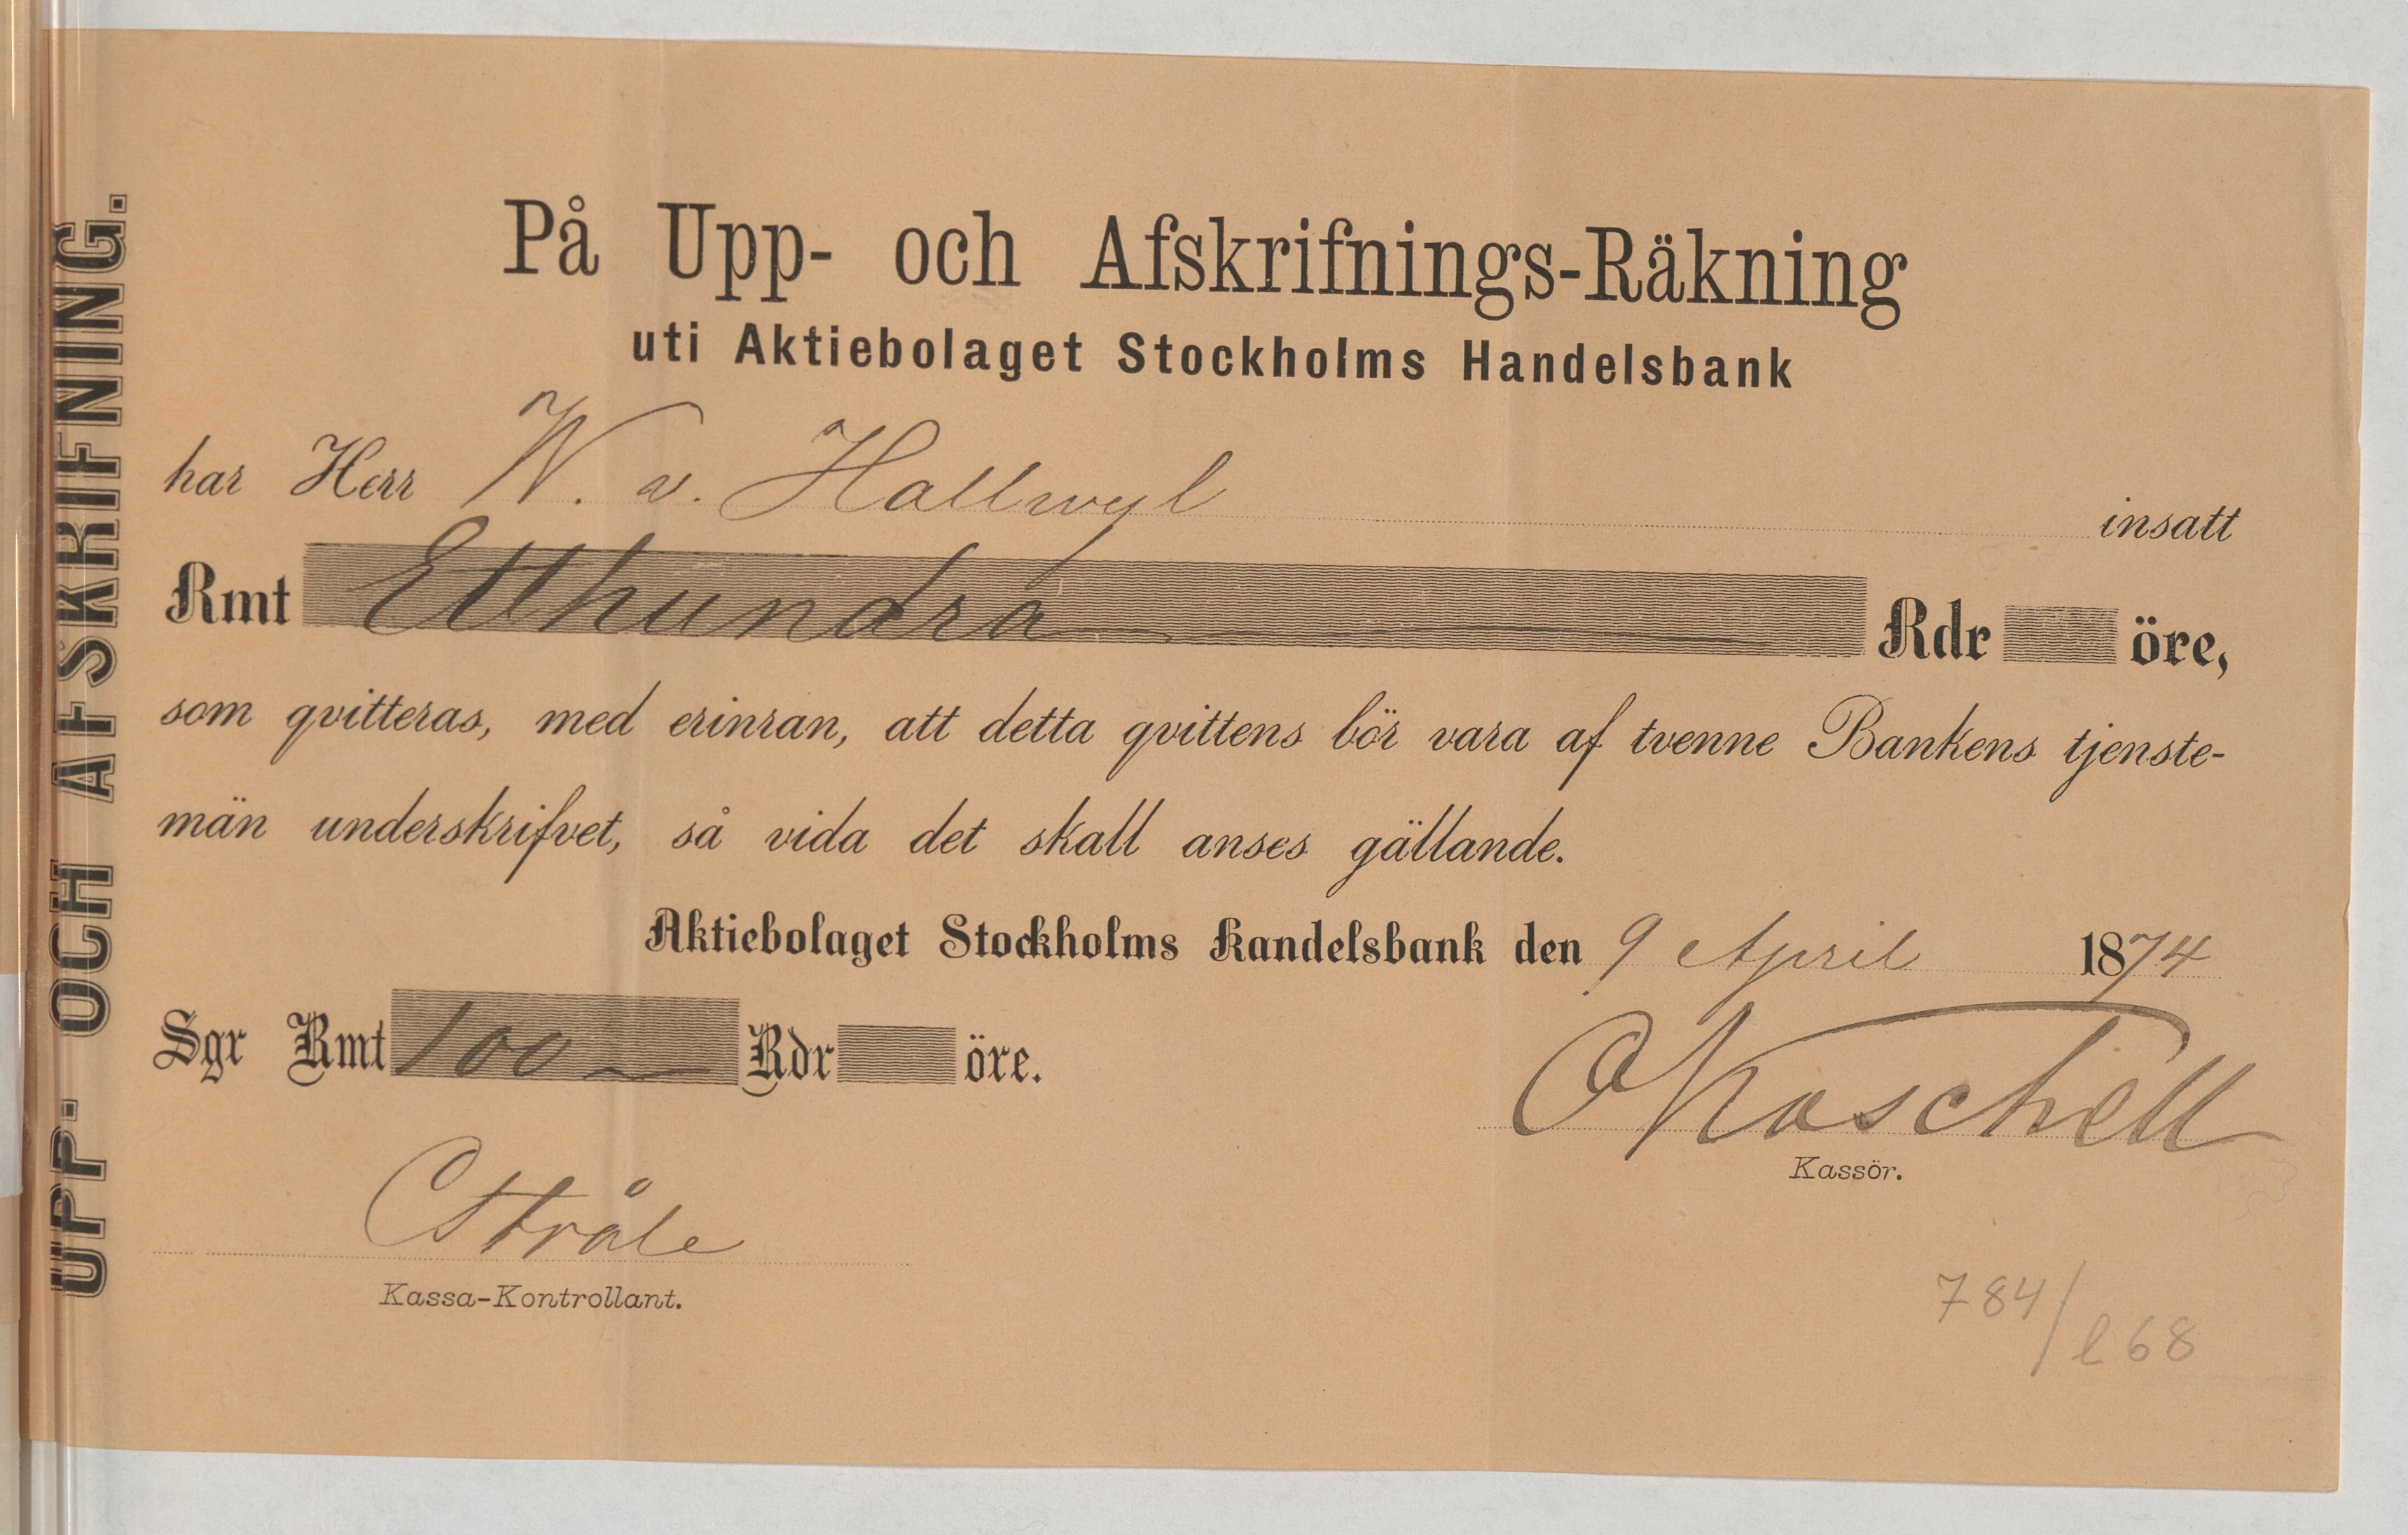 UPP- OCH AFSKRIFNING.
På Upp- och Afskrifnings-Räkning
uti Aktiebolaget Stockholms Handelsbank
har Herr W. v. Hallwyl insatt
Rmt Etthundra Rdr öre,
som qvitteras, med erinran, att detta qvittens bör vara af tvenne Bankens tjenste-
män underskrifvet, så vida det skall anses gällande.
Aktiebolaget Stockholms Handelsbank den 9 April 1874
Sgr Rmt 100 Rdr öre.
O Koschell
Kassör.
C Stråle
Kassa-Kontrollant.
784/
l 68